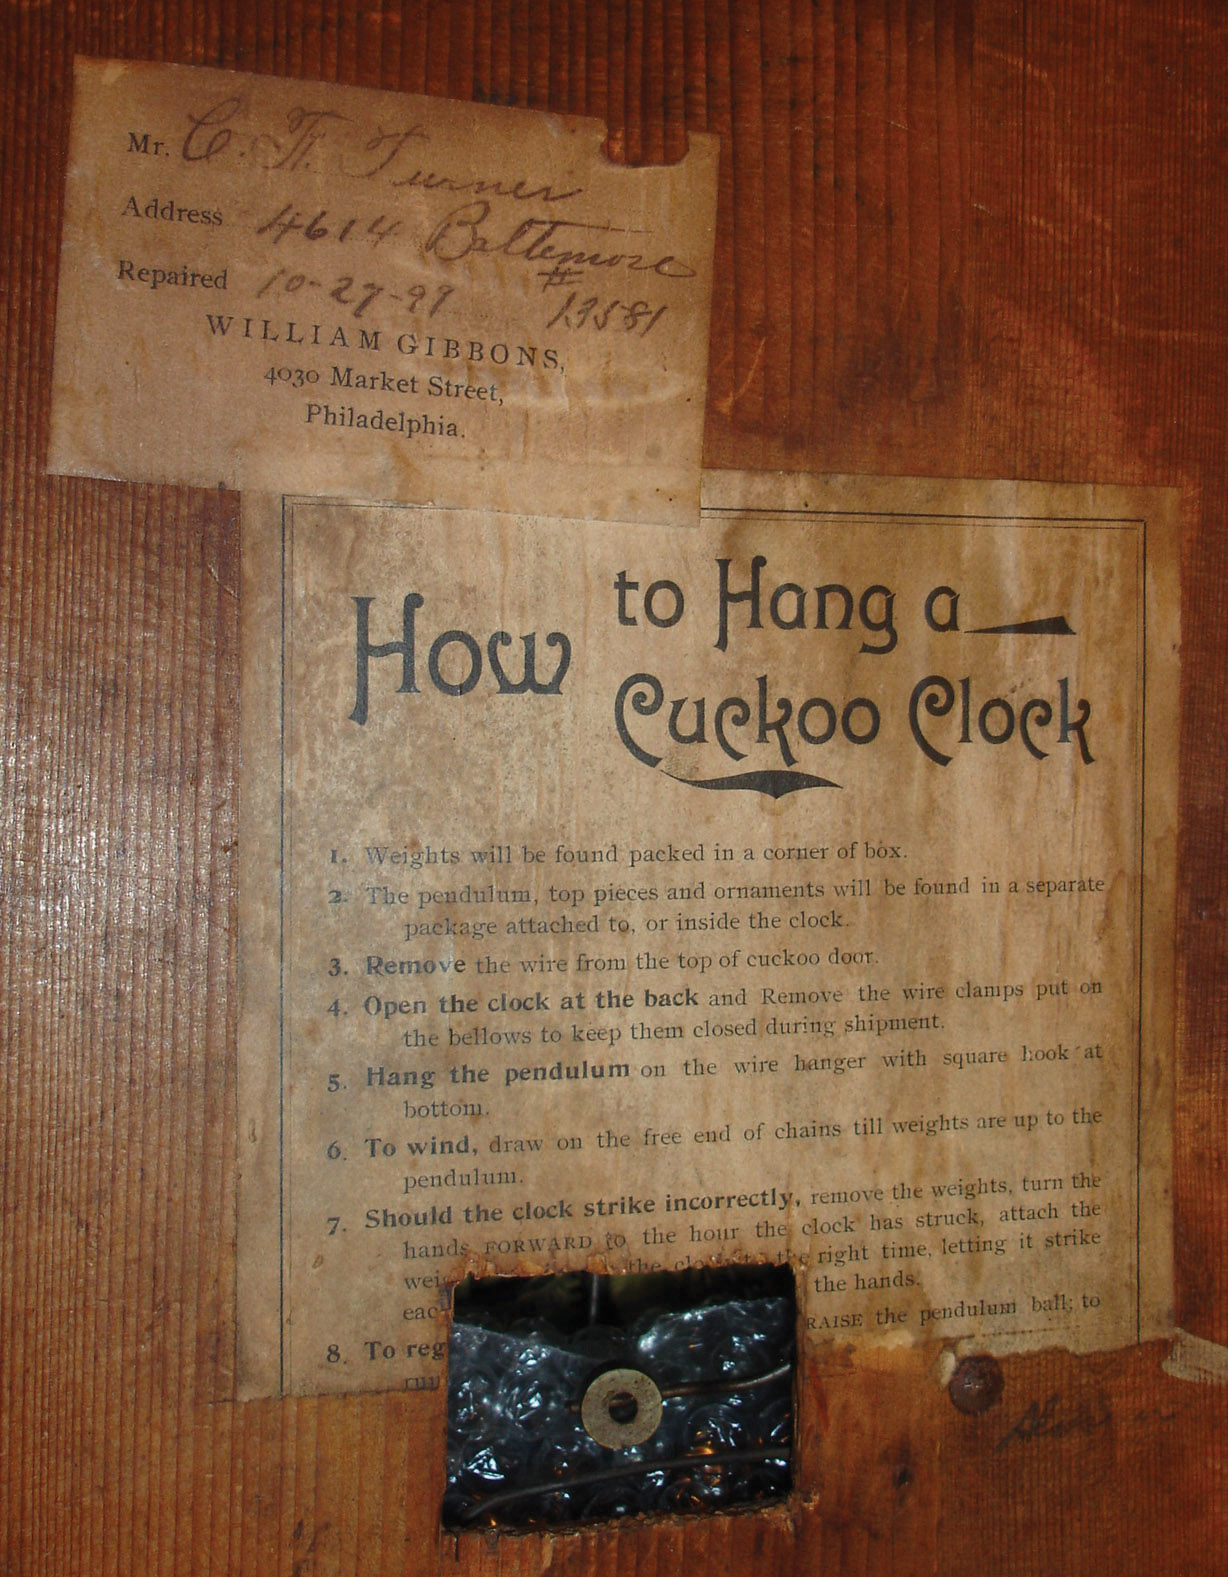 Mr. C. H. Turner
Address 4614 Baltemore
Repaired 10-27-97 #
13581
WILLIAM GIBBONS,
4030 Market Street,
Philadelphia.
How to Hang a
Cuckoo Clock
1. Weights will be found packed in a corner of box.
2. The pendulum, top pieces and ornaments will be found in a separate
package attached to, or inside the clock.
3. Remove the wire from the top of cuckoo door.
4. Open the clock at the back and Remove the wire clamps put on
the bellows to keep them closed during shipment.
5. Hang the pendulum on the wire hanger with square hook at
bottom.
6. To wind, draw on the free end of chains till weights are up to the
pendulum.
7. Should the clock strike incorrectly, remove the weights, turn the
hands FORWARD to the hour the clock has struck, attach the
wei the clock to the right time, letting it strike
eac the hands.
8. To reg RAISE the pendulum ball; to
run